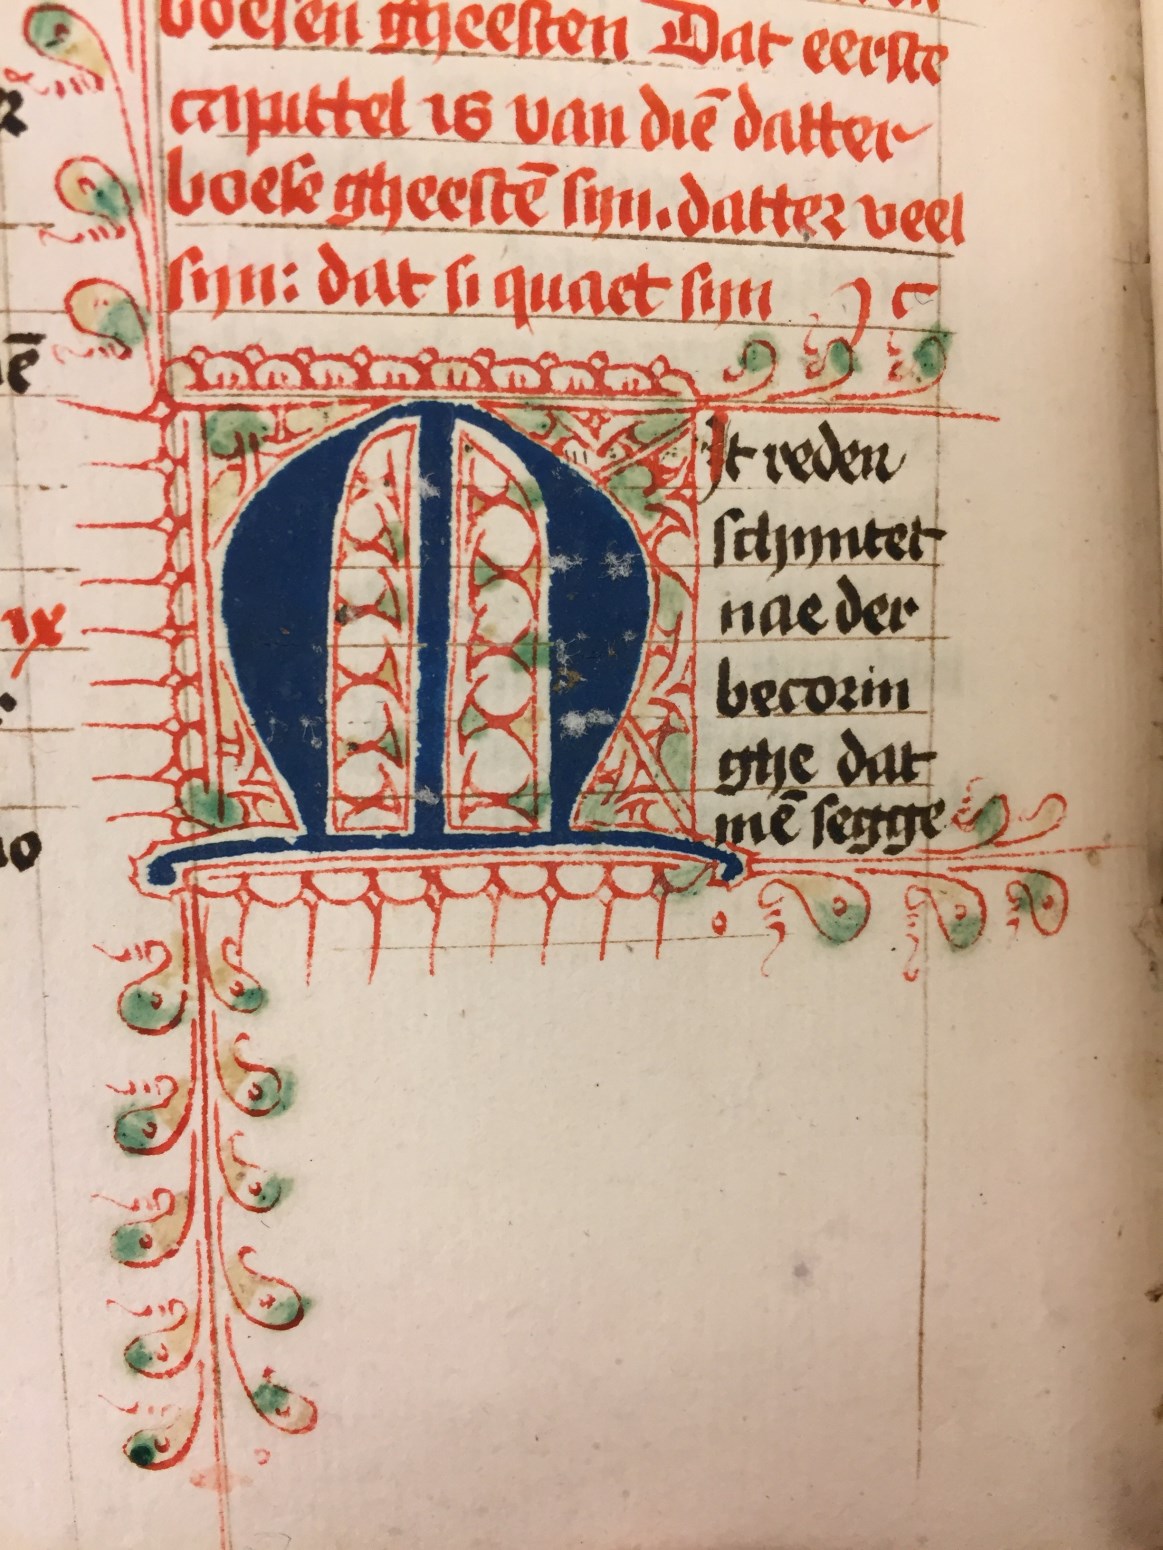 boesen gheesten Dat eerste
capittel is van diē datter
boese gheestē sijn. datter veel
sijn: dat si quaet sijn
ē
ix
Mit reden
schijntet
nae der
becorin
ghe dat
mē segge